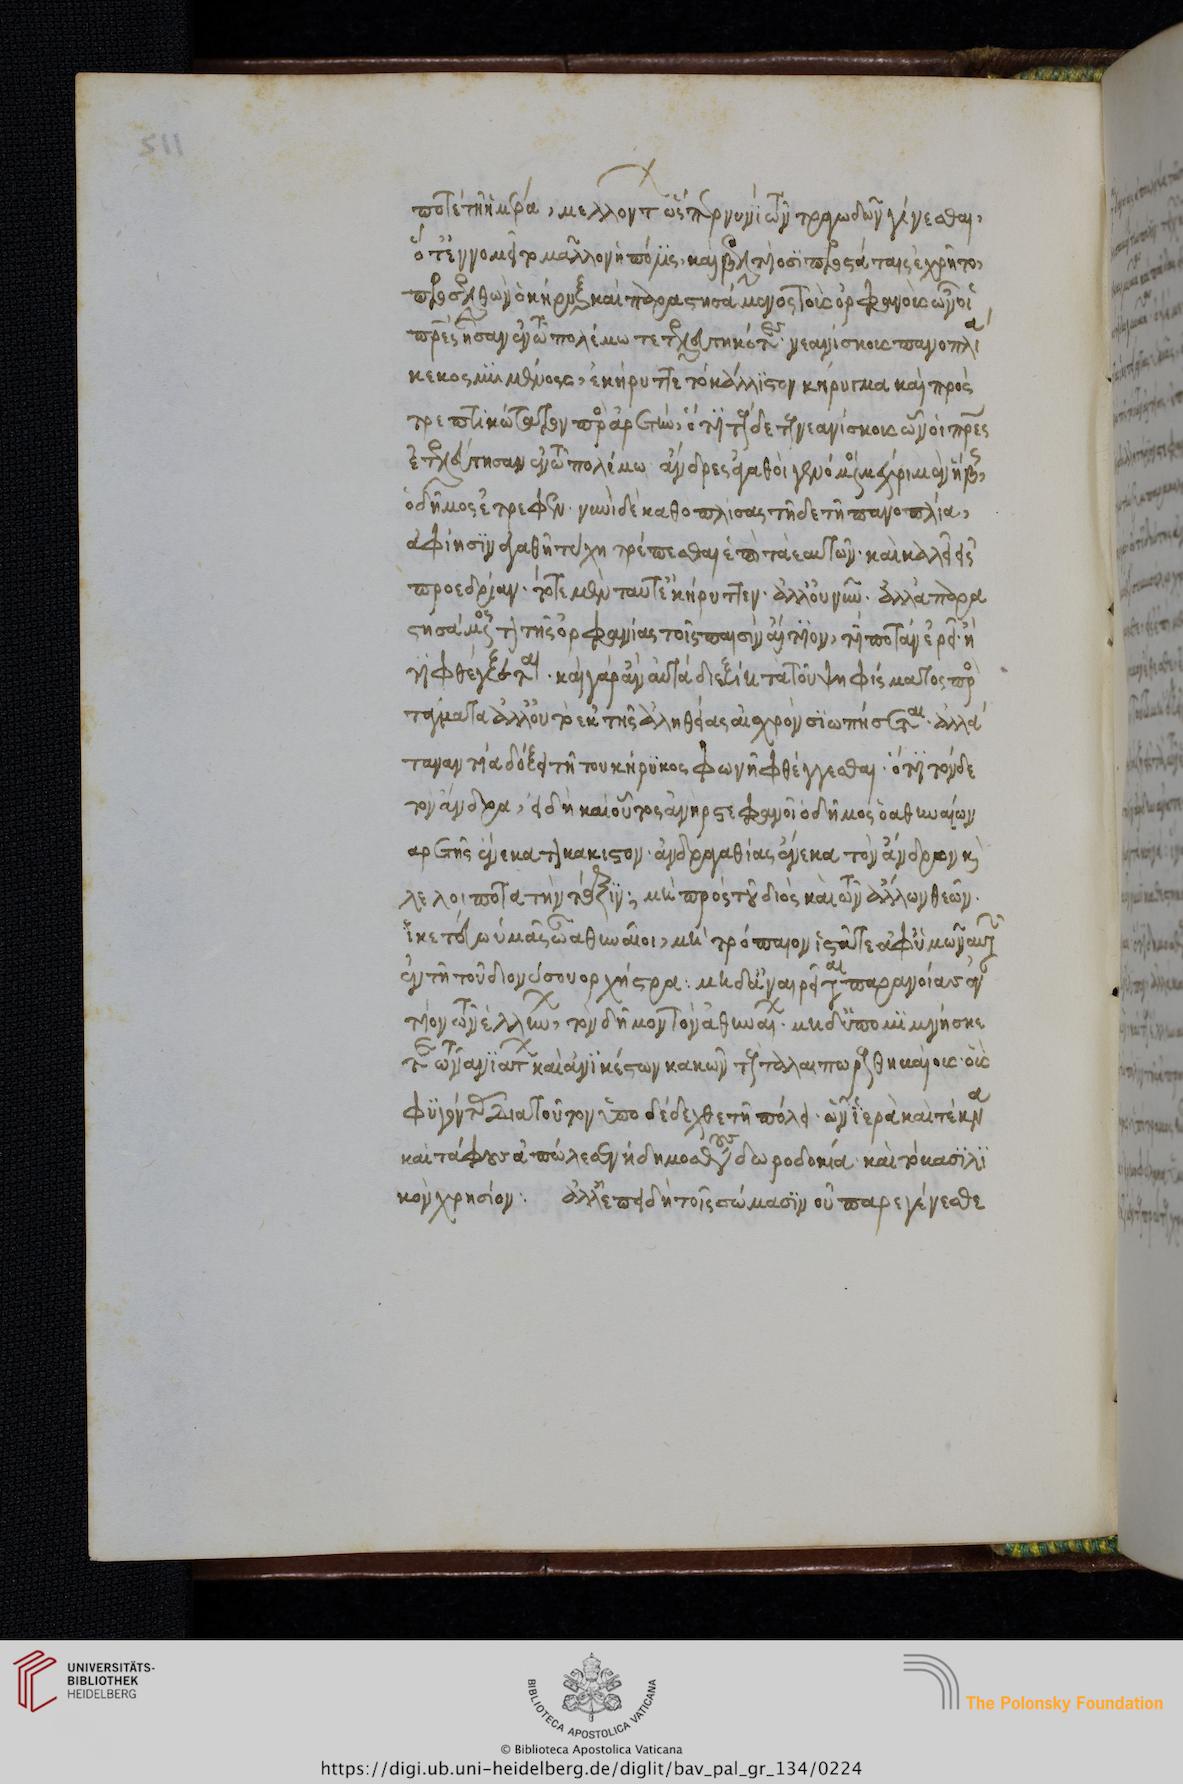 511
ποτε τῇ ἡμέρᾳ, μελλόντων ὥσπερ νυνὶ τῶν τραγῳδῶν γίνεσθαι,
ὅτ' εὐνομεῖτο μᾶλλον ἡ πόλις, καὶ βελτίοσι προστάταις ἐχρῆτο,
προσελθὼν ὁ κήρυξ καὶ παραστησάμενος τοὺς ὀρφανοὺς ὧν οἱ
πατέρες ἦσαν ἐν τῷ πολέμῳ τετελευτηκότες νεανίσκους πανοπλίᾳ
κεκοσμημένους, ἐκήρυττε τὸ κάλλιστον κήρυγμα καὶ προς
τρεπτικώτατον πρὸς ἀρετήν, ὅτι τούσδε τοὺς νεανίσκους ὧν οἱ πατέρες
ἐτελεύτησαν ἐν τῷ πολέμῳ ἄνδρες ἀγαθοὶ γενόμενοι μέχρι μὲν ἥβης,
ὁ δῆμος ἔτρεφεν· νυνὶ δὲ καθοπλίσας τῇδε τῇ πανοπλίᾳ,
ἀφίησιν ἀγαθῇ τύχῃ τρέπεσθαι ἐπὶ τὰ ἑαυτῶν· καὶ καλεῖ εἰς
προεδρίαν· τότε μὲν ταῦτ' ἐκήρυττεν· ἀλλ' οὐ νῦν· ἀλλὰ παρα
στησάμενος τὸν τῆς ὀρφανίας τοῖς παισὶν αἴτιον, τί ποτ' ἀνερεῖ· ἢ
τί φθέγξεται· καὶ γὰρ ἂν αὐτὰ διεξίῃ τὰ τοῦ ψηφίσματος προσ
τάγματα ἀλλ' οὐ τό γ' ἐκ τῆς ἀληθείας αἰσχρὸν σιωπήσεται· ἀλλὰ
τἀναντία δόξει τῇ τοῦ κήρυκος φωνῇ φθέγγεσθαι· ὅτι τόνδε
τὸν ἄνδρα, εἰ δὴ καὶ οὗτος ἀνὴρ στεφανοῖ ὁ δῆμος ὁ ἀθηναίων
ἀρετῆς ἕνεκα τὸν κάκιστον· ἀνδραγαθίας ἕνεκα τὸν ἄνανδρον καὶ
λελοιπότα τὴν τάξιν· μὴ πρὸς τοῦ διὸς καὶ τῶν ἄλλων θεῶν·
ἱκετεύω ὑμᾶς ὦ ἀθηναῖοι, μὴ τρόπαιον ἵστατε ἀφ' ὑμῶν αὐτῶν
ἐν τῇ τοῦ διονύσου ὀρχήστρᾳ· μηδ' αἱρεῖτε παρανοίας ἐναν
τίον τῶν ἑλλήνων, τὸν δῆμον τὸν ἀθηναίων· μηδ' ὑπομιμνήσκε
τε τῶν ἀνιάτων καὶ ἀνηκέστων κακῶν τοὺς ταλαιπώρους θηβαίους· οὓς
φυγόντας διὰ τοῦτον ὑποδέδεχθε τῇ πόλει· ὧν ἱερὰ καὶ τέκνα
καὶ τάφους ἀπώλεσεν ἡ δημοσθένους δωροδοκία· καὶ τὸ βασιλι
κὸν χρυσίον· ἀλλ' ἐπειδὴ τοῖς σώμασιν οὐ παρεγένεσθε
UNIVERSITÄTS-
BIBLIOTHEK
HEIDELBERG
BIBLIOTECA APOSTOLICA VATICANA
The Polonsky Foundation
© Biblioteca Apostolica Vaticana
https://digi.ub.uni-heidelberg.de/diglit/bav_pal_gr_134/0224